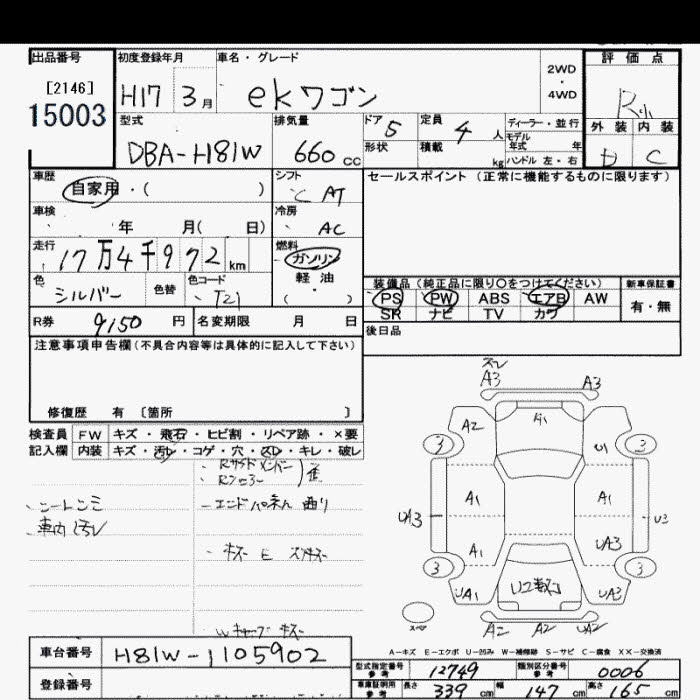 出品番号
[2146]
15003
初度登録年月
H17 3月
車名・グレード
ekワゴン
2WD
・
4WD
評価点
R
外装 内装
D C
型式
DBA-H81W
排気量
660 cc
ドア 5
定員 4 人
形状
積載 kg
ディーラー・並行
モデル年式 年
ハンドル 左・右
車歴
自家用・( )
シフト
AT
車検
年 月( 日)
冷房
AC
走行
17万4千972km
燃料
ガソリン
軽油
( )
色
シルバー
色替
色コード
T21
R券 9150 円
名変期限 月 日
セールスポイント (正常に機能するものに限ります)
装備品 (純正品に限り○をつけてください)
新車保証書
PS PW ABS エアB AW
有・無
SR ナビ TV カワ
後日品
注意事項申告欄 (不具合内容等は具体的に記入して下さい)
修復歴 有 〔箇所 〕
検査員 FW キズ・飛石・ヒビ割・リペア跡・×要
記入欄 内装 キズ・汚レ・コゲ・穴・スレ・キレ・破レ
Rサイドメンバー
Rフロアー
シートシミ
車内汚レ
エンドパネル 曲り
キズ E
キズ
A3
A3
A2
A1
U1
3
3
A1
A1
UA3
U3
A1
UA3
3
3
UA1
U2
UA3
スペア
A2
A2
UA2
A-キズ E-エクボ U-凹み W-補修跡 S-サビ C-腐食 XX-交換済
車台番号 H81W-1105902
登録番号
型式指定番号 参考 12749
類別区分番号 参考 0006
車庫証明用 参考 長さ 339 cm 幅 147 cm 高さ 165 cm